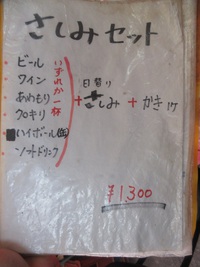 さしみセット
ビール
ワイン
あわもり
クロキリ
ハイボール
ソフトドリンク
いずれか一杯
+
日替り
さしみ
+ かき1ケ
¥1,300